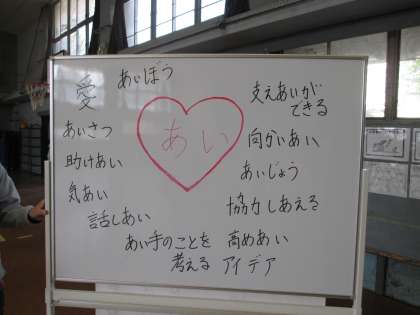 愛
あいぼう
あいさつ
助けあい
気あい
話しあい
あい
支えあいが
できる
向かいあい
あいじょう
協力しあえる
あい手のことを
考える
高めあい
アイデア